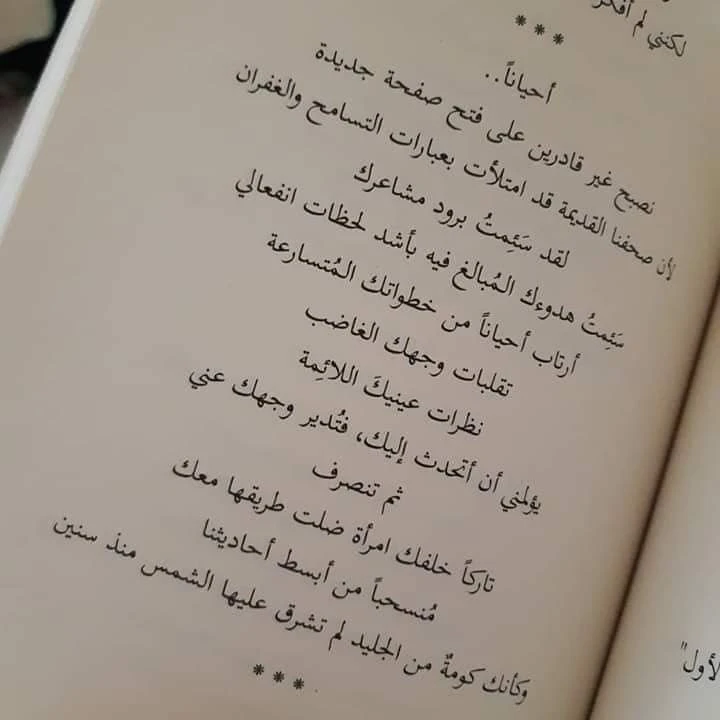 لكنني لم أفكر
***
أحياناً..
نصبح غير قادرين على فتح صفحة جديدة
لأن صحفنا القديمة قد امتلأت بعبارات التسامح والغفران
لقد سَئِمتُ برود مشاعرك
سَئِمتُ هدوءك المُبالغ فيه بأشد لحظات انفعالي
أرتاب أحياناً من خطواتك المُتسارعة
تقلبات وجهك الغاضب
نظرات عينيكَ اللائِمة
يؤلمني أن أتحدث إليك، فتُدير وجهك عني
ثم تنصرف
تاركاً خلفك امرأة ضلت طريقها معك
مُنسحباً من أبسط أحاديثنا
وكأنك كومةٌ من الجليد لم تشرق عليها الشمس منذ سنين
***
لأول"